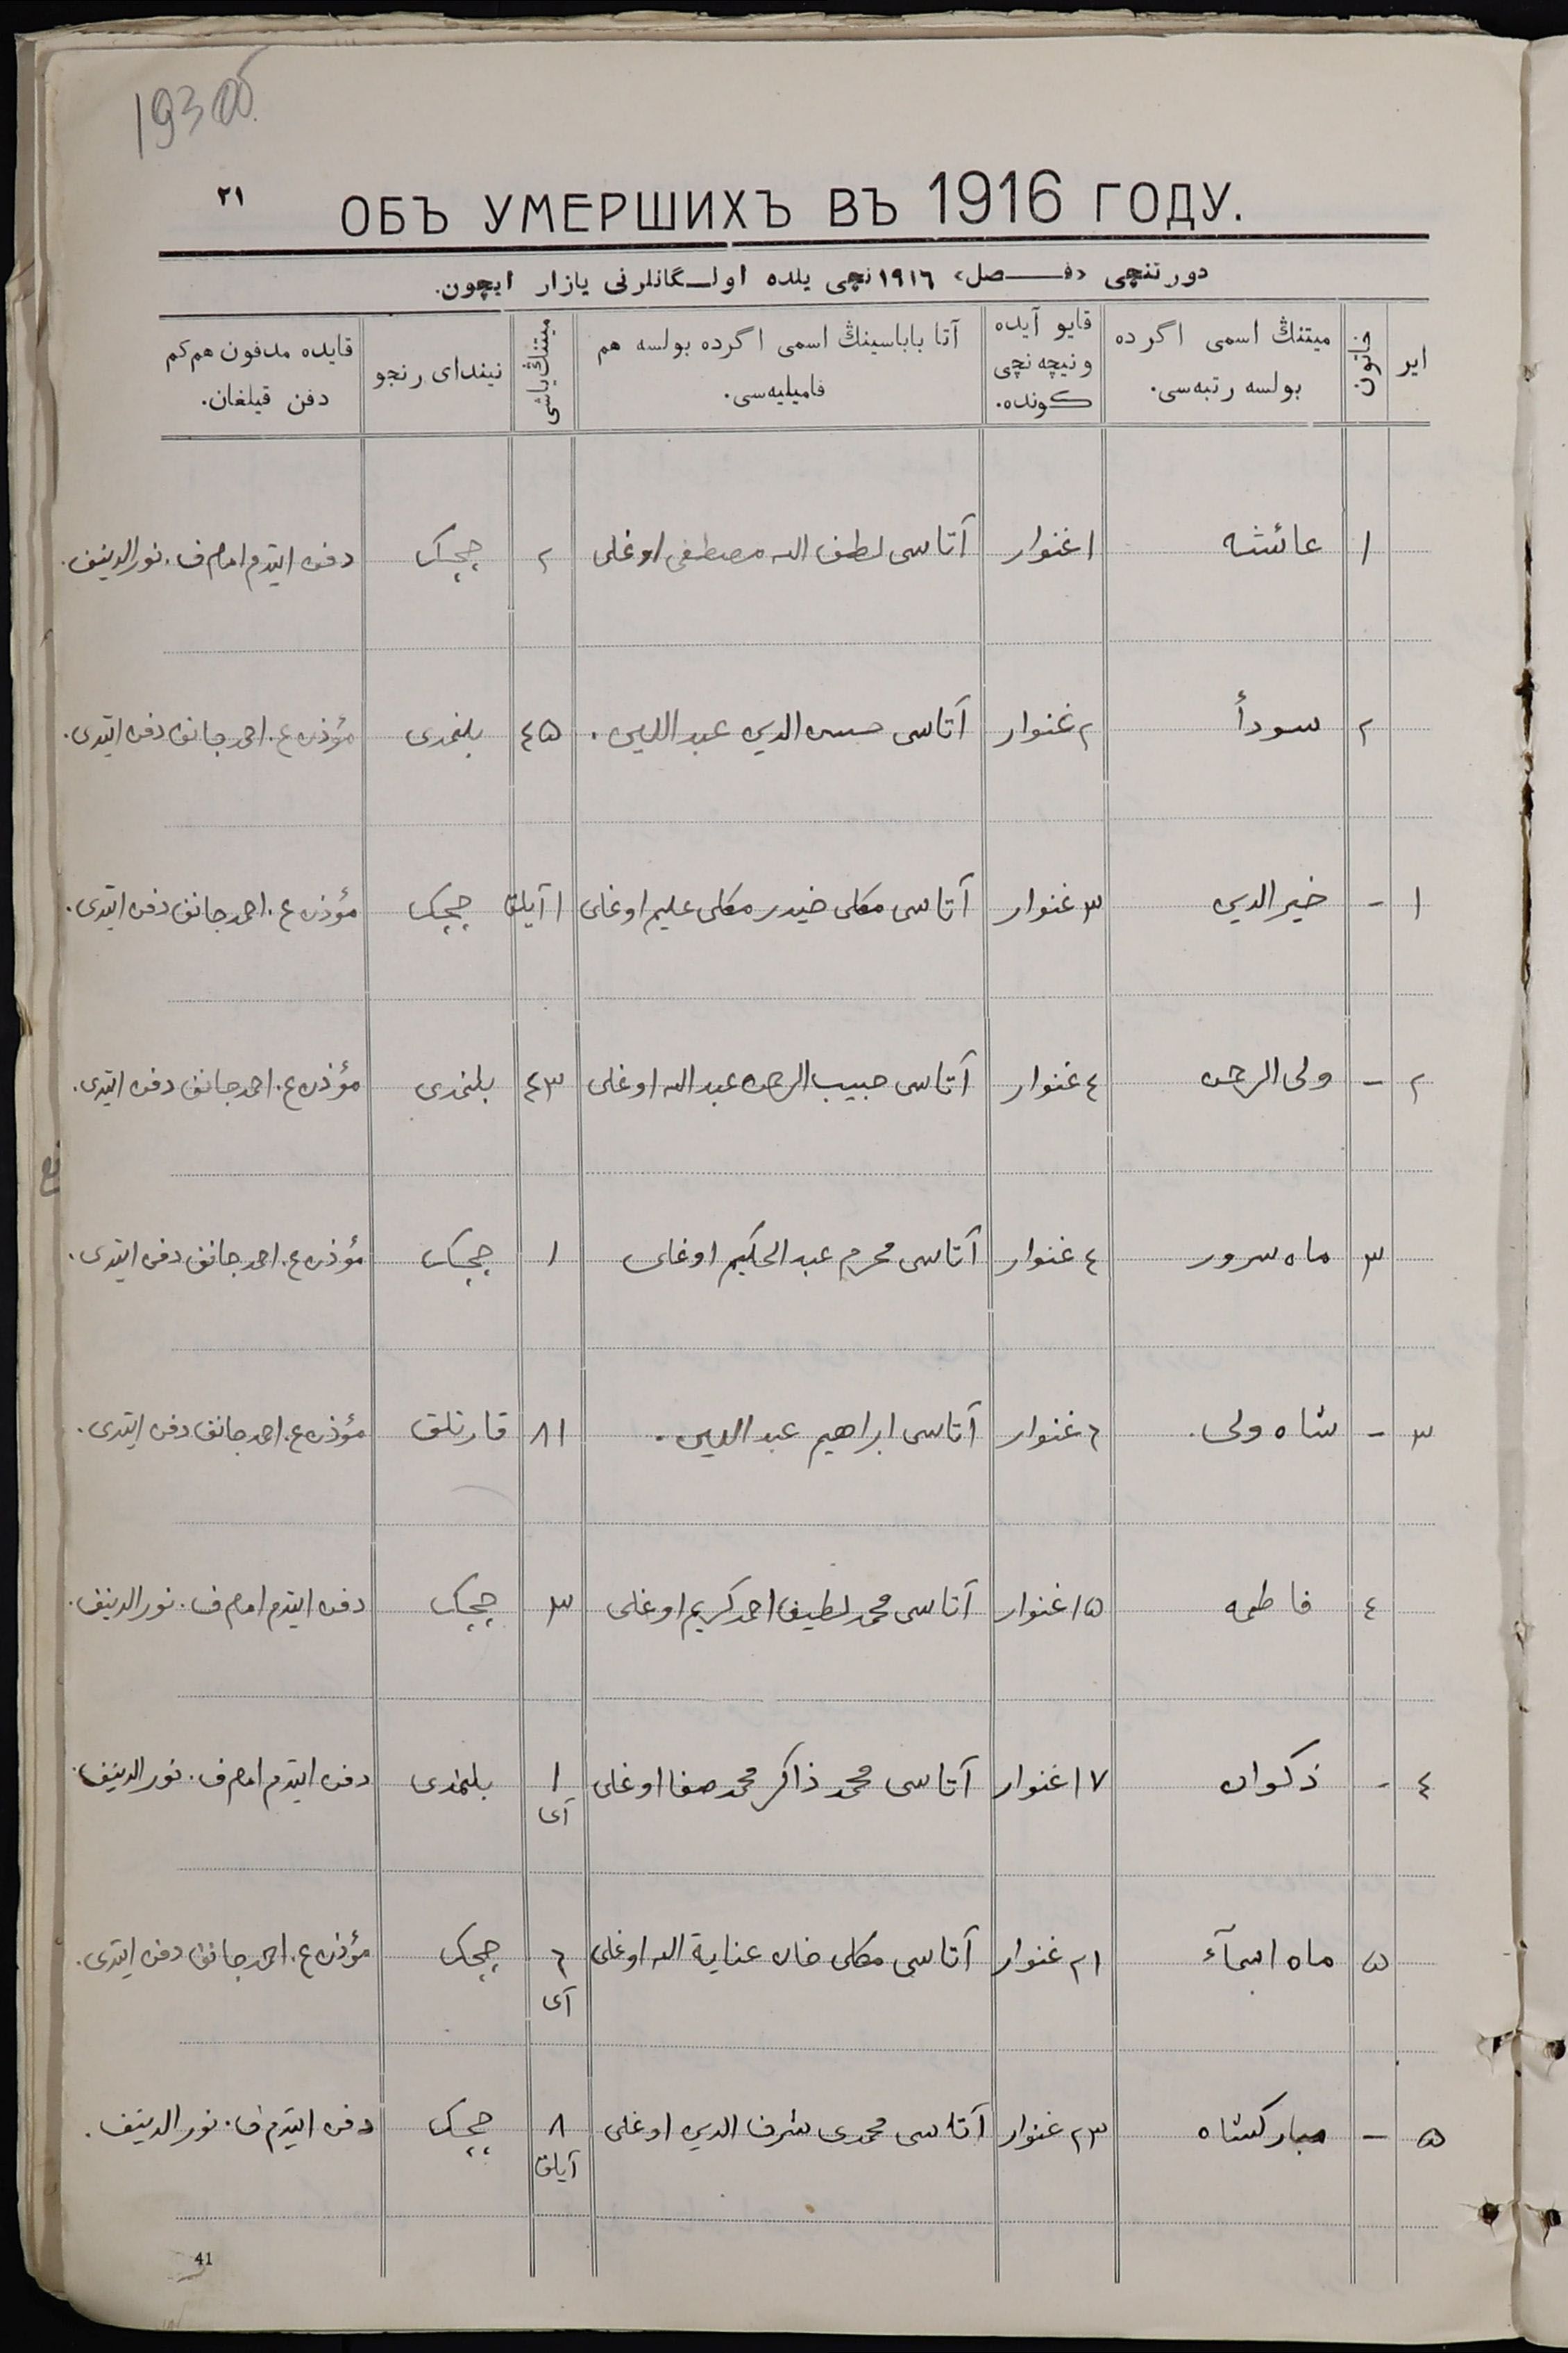 193 об.
٢١
ОБЪ УМЕРШИХЪ ВЪ 1916 ГОДУ.
دورتنچی «فـصل» ١٩١٦ نچی یلده اولـگانلرنی یازار ایچون.
ایر
خاتون
میتنڭ اسمی اگر ده
بولسه رتبه‌سی.
قایو آیده
ونیچه نچی
کونده.
آتا باباسینڭ اسمی اگر ده بولسه هم
فامیلیه‌سی.
میتنڭ یاشی
نیندای رنجو
قایده مدفون هم کم
دفن قیلغان.
١ عائشه ١ غنوار آتاسی لطف الله مصطفی اوغلی ٢ چچک دفن ایتدم امام ف. نورالدینف.
٢ سودأ ٢ غنوار آتاسی حسن الدین عبد اللین. ٤٥ بلنمدی مؤذن ع. احمدجانف دفن ایتدی.
١ - خیر الدین ٣ غنوار آتاسی مکلی حیدر مکلی علیم اوغلی ١ آیلق چچک مؤذن ع. احمدجانف دفن ایتدی.
٢ - ولی الرحمن ٤ غنوار آتاسی حبیب الرحمن عبد الله اوغلی ٤٣ بلنمدی مؤذن ع. احمدجانف دفن ایتدی.
٣ ماه سرور ٤ غنوار آتاسی محرم عبد الحکیم اوغلی ١ چچک مؤذن ع. احمدجانف دفن ایتدی.
٣ - شاه ولی. ٦ غنوار آتاسی ابراهیم عبد اللین. ٨١ قارتلق مؤذن ع. احمدجانف دفن ایتدی.
٤ فاطمه ١٥ غنوار آتاسی محمد لطیف احمد کریم اوغلی ٣ چچک دفن ایتدم امام ف. نورالدینف.
٤ - ذکوان ١٧ غنوار آتاسی محمد ذاکر محمد صفا اوغلی ١ بلنمدی دفن ایتدم امام ف. نورالدینف.
آی
٥ ماه اسمآء ٢١ غنوار آتاسی مکلی خان عنایة الله اوغلی ٦ چچک مؤذن ع. احمدجانف دفن ایتدی.
آی
٥ - مبارکشاه ٢٣ غنوار آتاسی محمدی شرف الدین اوغلی ٨ چچک دفن ایتدم ف. نورالدینف.
آیلق
41